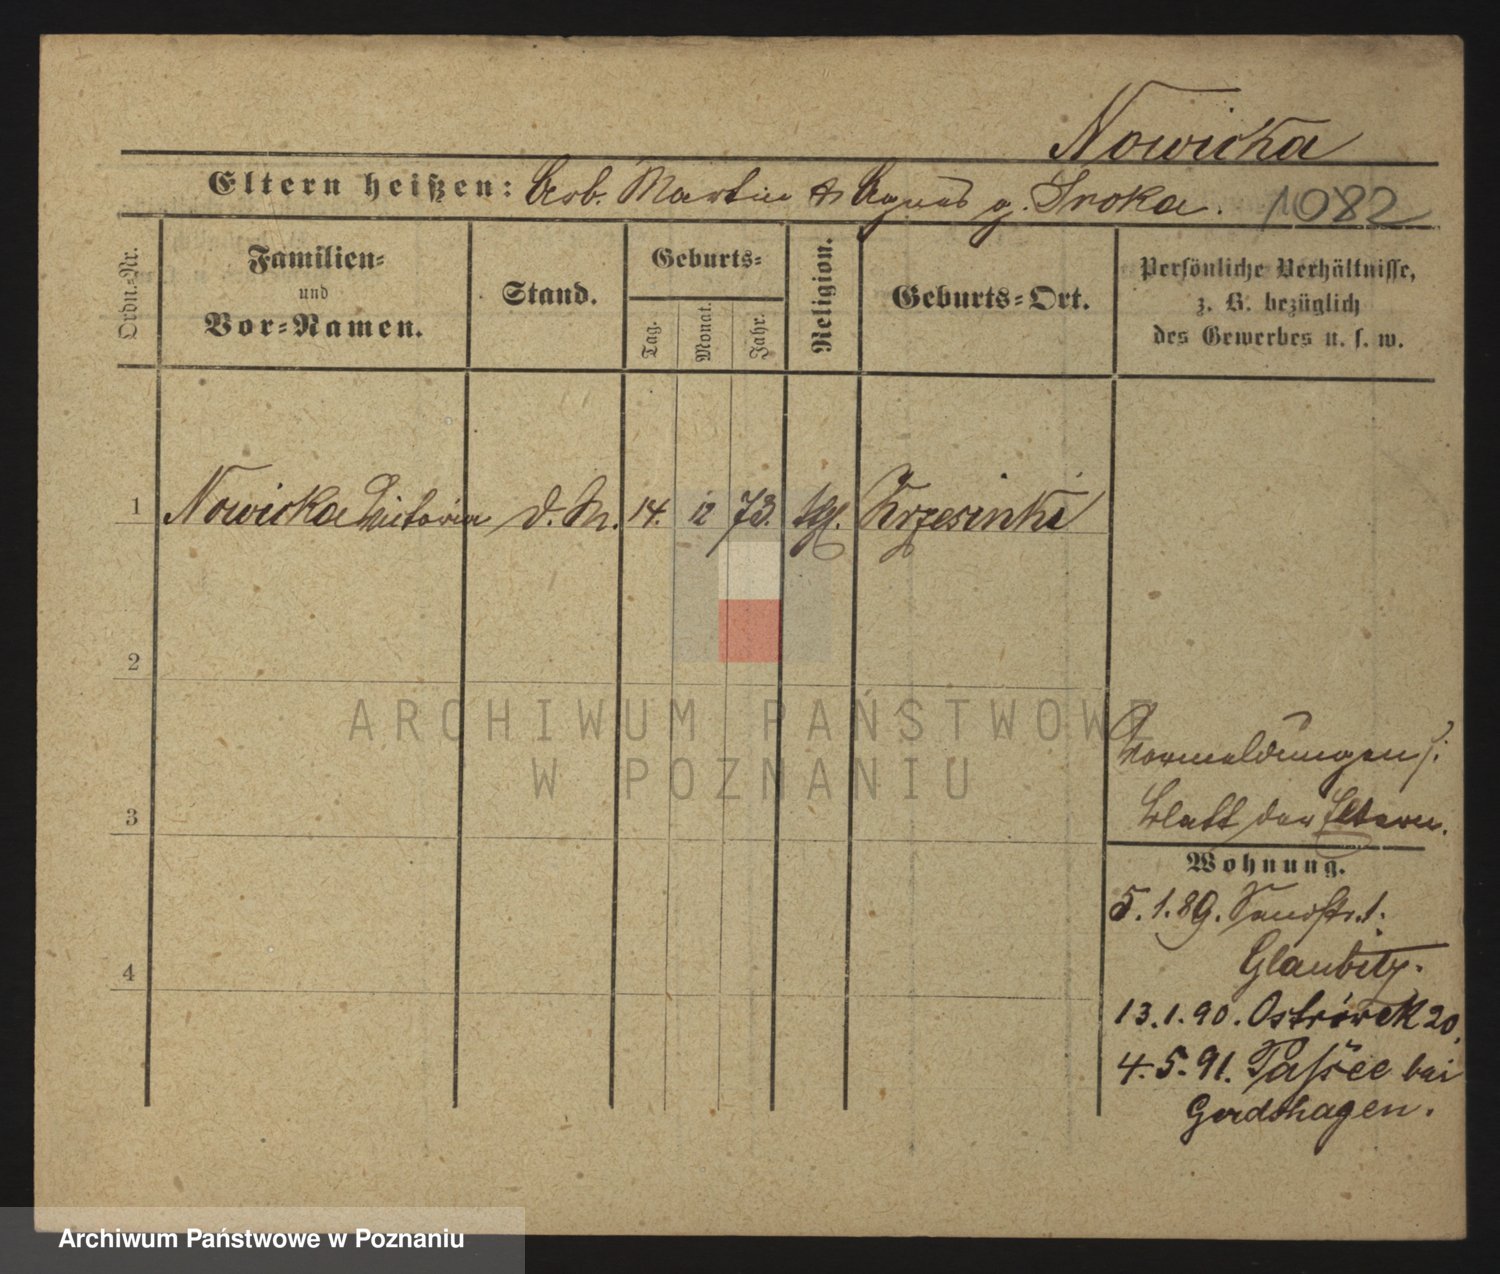 Nowicka
Eltern heißen: Arb. Martin & Agnes g. Sroka. 1082
Ordn.-Nr.
Familien-
und
Vor-Namen.
Stand.
Geburts-
Tag.
Monat.
Jahr.
Religion.
Geburts-Ort.
Persönliche Verhältnisse,
z. B. bezüglich
des Gewerbes u. s. w.
1 Nowicka Victoria d. M. 14. 12 73. kth. Krzesinki
2
3
4
Vormeldungen s.
Blatt der Eltern.
Wohnung.
5.1.89. Sandstr. 1.
Glaubitz.
13.1.90. Ostrówek 20.
4.5.91. bei
Gerdshagen.
ARCHIWUM PAŃSTWOWE
W POZNANIU
Archiwum Państwowe w Poznaniu